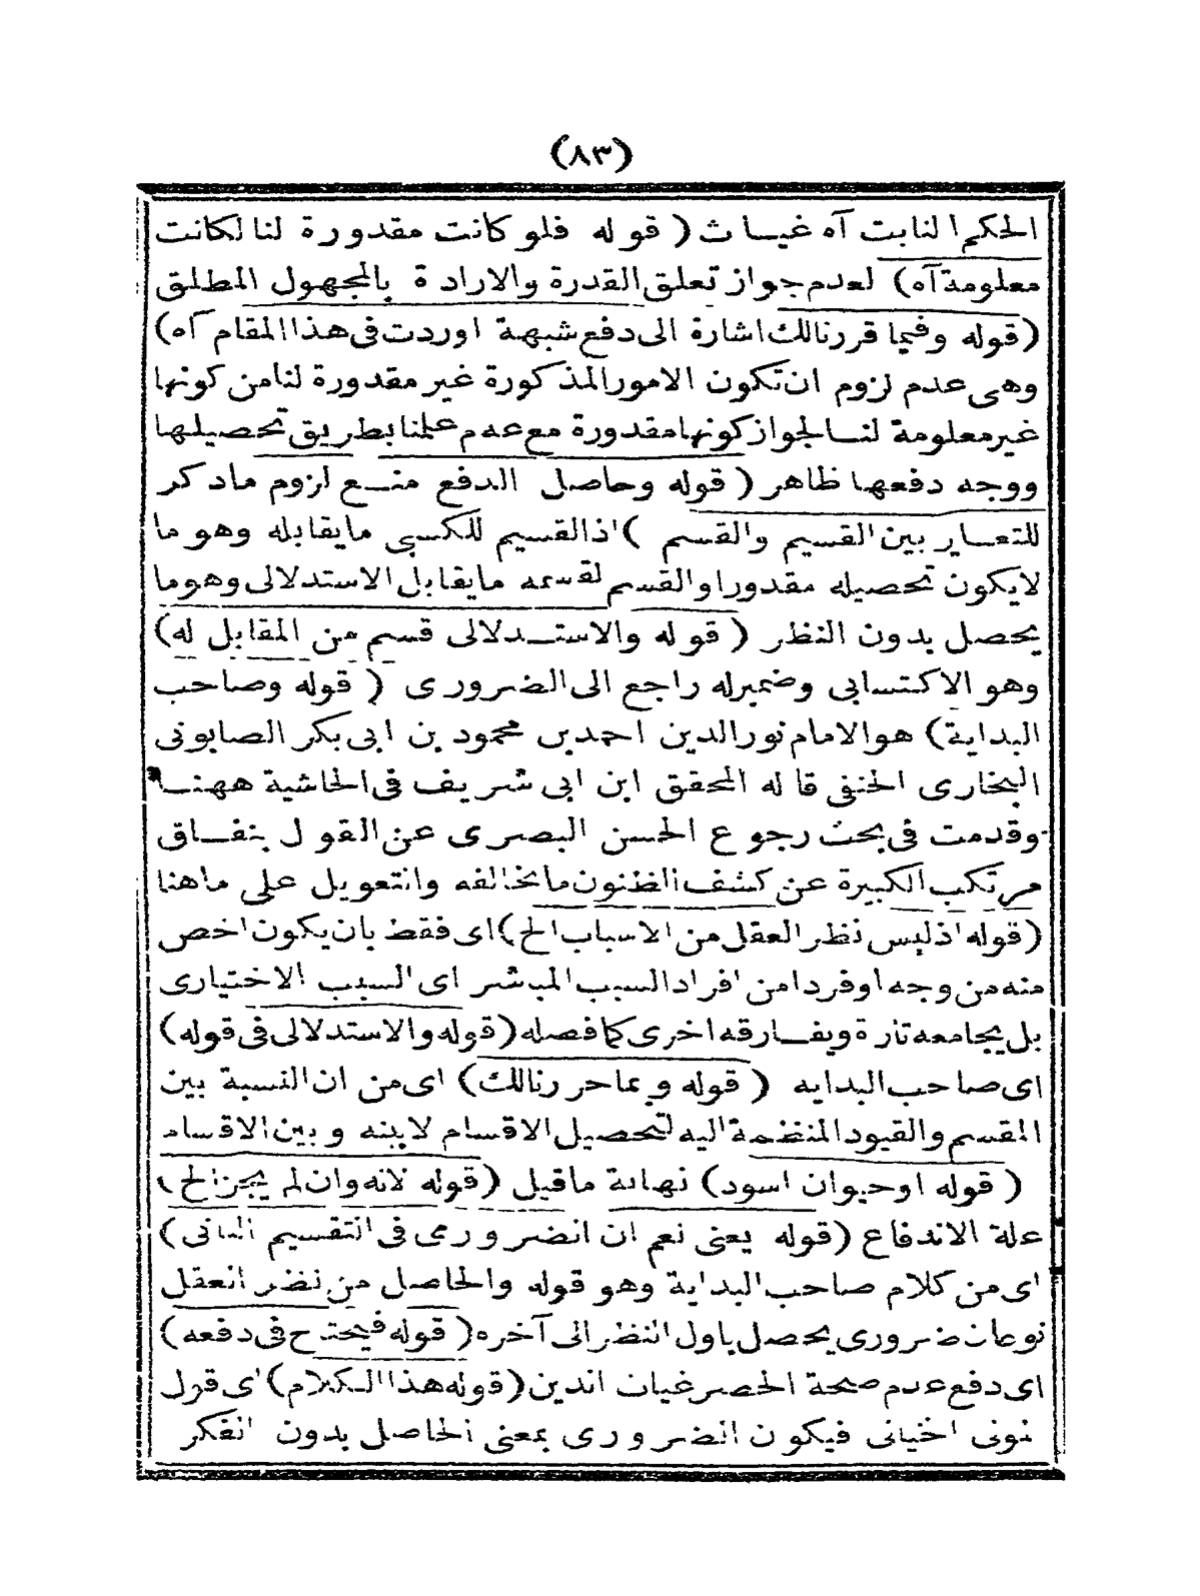 (٨٣)
الحكم الثابت آه غياث (قوله فلو كانت مقدورة لنا لكانت
معلومة آه) لعدم جواز تعلق القدرة والارادة بالمجهول المطلق
(قوله وفيما قررنا لك اشارة الى دفع شبهة اوردت فى هذا المقام آه)
وهى عدم لزوم ان تكون الامور المذكورة غير مقدورة لنا من كونها
غير معلومة لنا لجواز كونها مقدورة مع عدم علمنا بطريق تحصيلها
ووجه دفعها ظاهر (قوله وحاصل الدفع منع لزوم ما ذكر
للتعاير بين القسيم والقسم) اذ القسيم للكسبى مايقابله وهو ما
لايكون تحصيله مقدورا والقسم لقسمه مايقابل الاستدلالى وهو ما
يحصل بدون النظر (قوله والاستدلالى قسم من المقابل له)
وهو الاكتسابى وضميرله راجع الى الضرورى (قوله وصاحب
البداية) هو الامام نور الدين احمد بن محمود بن ابى بكر الصابونى
البخارى الحنفى قاله المحقق ابن ابى شريف فى الحاشية ههنا
وقدمت فى بحث رجوع الحسن البصرى عن القول بنفاق
مرتكب الكبيرة عن كشف الظنون ما يخالفه والتعويل على ما هنا
(قوله اذ ليس نظر العقل من الاسباب الخ) اى فقط بان يكون اخص
منه من وجه او فردا من افراد السبب المبشر اى السبب الاختيارى
بل يجامعه تارة ويفارقه اخرى كما فصله (قوله والاستدلالى فى قوله)
اى صاحب البدايه (قوله وبما حررنا لك) اى من ان النسبة بين
المقسم والقيود المنضمة اليه لتحصيل الاقسام لا بينه وبين الاقسام
(قوله او حيوان اسود) نهاية ماقيل (قوله لانه وان لم يجز الخ)
علة الاندفاع (قوله يعنى نعم ان الضرورى فى التقسيم الثانى)
اى من كلام صاحب البداية وهو قوله والحاصل من نظر العقل
نوعان ضرورى يحصل باول النظر الى آخره (قوله فيحتج فى دفعه)
اى دفع عدم صحة الحصر غياث الدين (قوله هذا الكلام) اى قول
المولى الخيالى فيكون الضرورى بمعنى الحاصل بدون الفكر